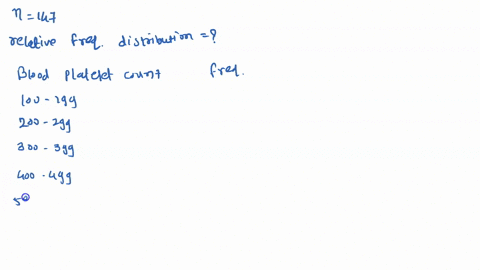 n = 147
relative freq. distribution = ?
Blood Platelet count freq.
100 - 199
200 - 299
300 - 399
400 - 499
50